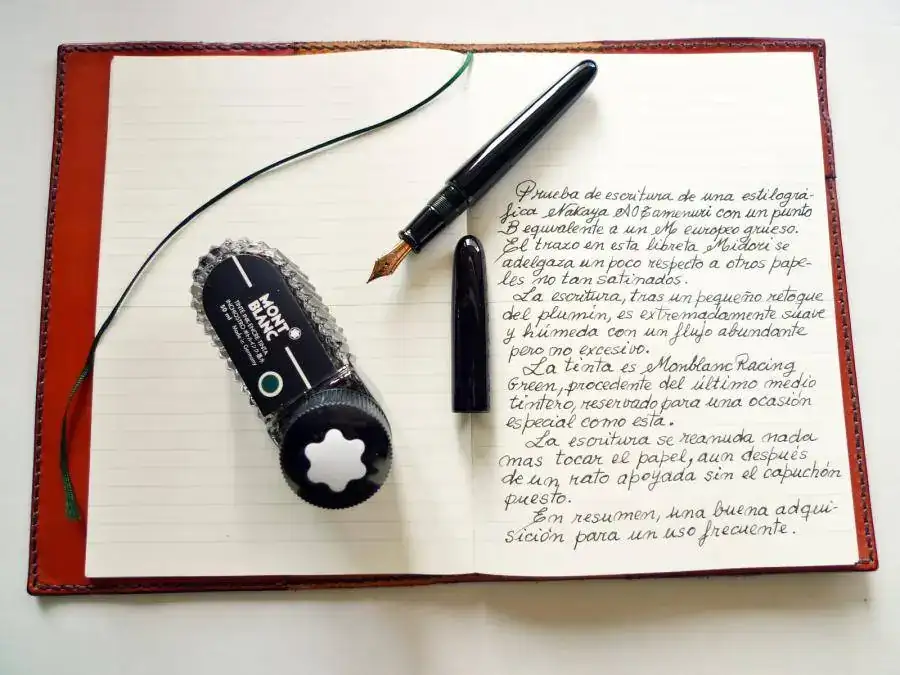 MONT
BLANC
TINTE INK ENCRE TINTA
INCHIOSTRO
50 ml
Made in Germany
Prueba de escritura de una estilográ-
fica Nakaya Aizamenuri con un punto
B equivalente a un M europeo grueso.
El trazo en esta libreta Midori se
adelgaza un poco respecto a otros pape-
les no tan satinados.
La escritura, tras un pequeño retoque
del plumin, es extremadamente suave
y húmeda con un flujo abundante
pero no excesivo.
La tinta es Monblanc Racing
Green, procedente del último medio
tintero, reservado para una ocasión
especial como esta.
La escritura se reanuda nada
mas tocar el papel, aun después
de un rato apoyada sin el capuchón
puesto.
En resumen, una buena adqui-
sición para un uso frecuente.